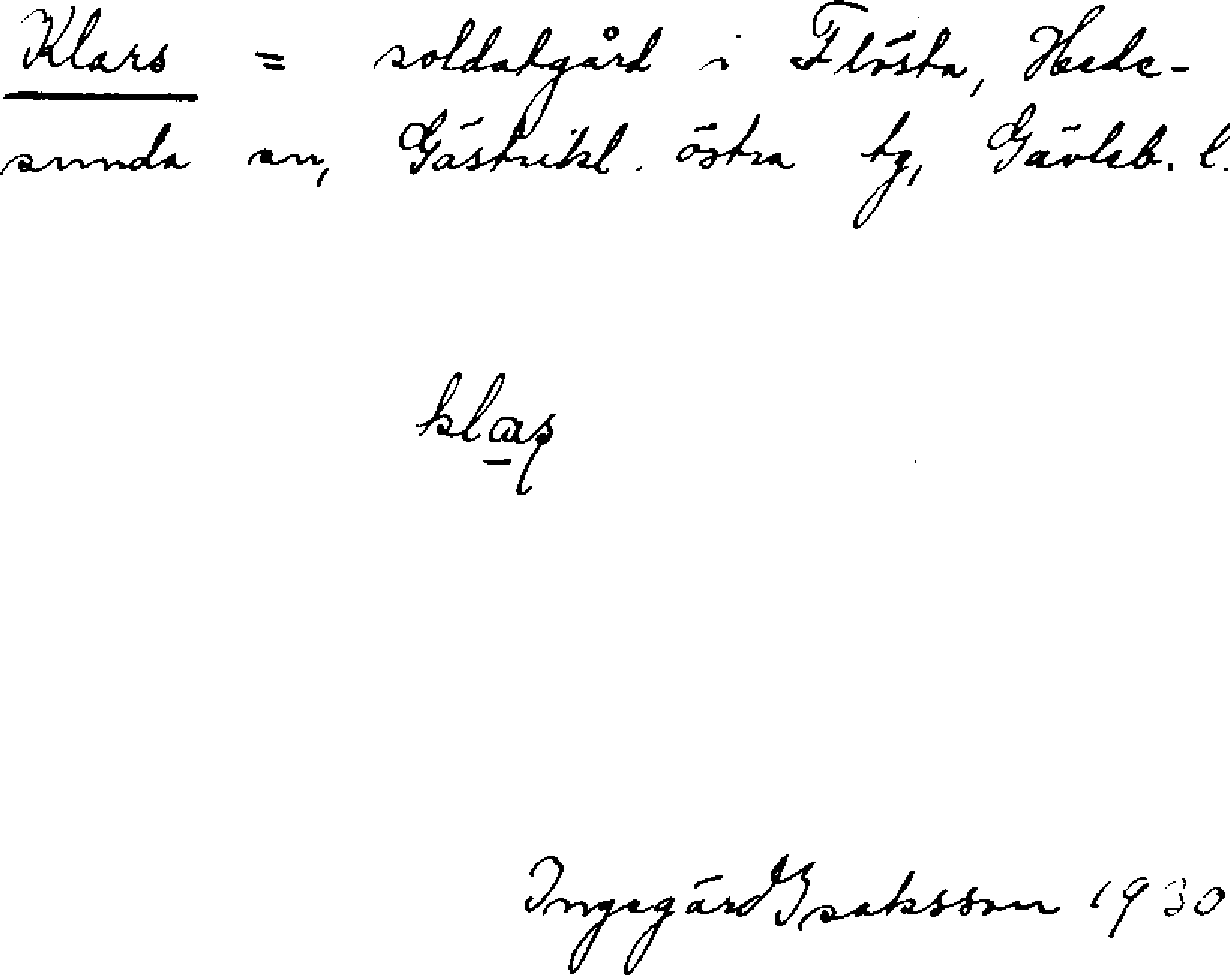 Klars = soldatgård i Flösta, Hede-
sunda sn, Gästrikl. östra tg, Gävleb. l.
klaṣ
Ingegärd Isaksson 1930